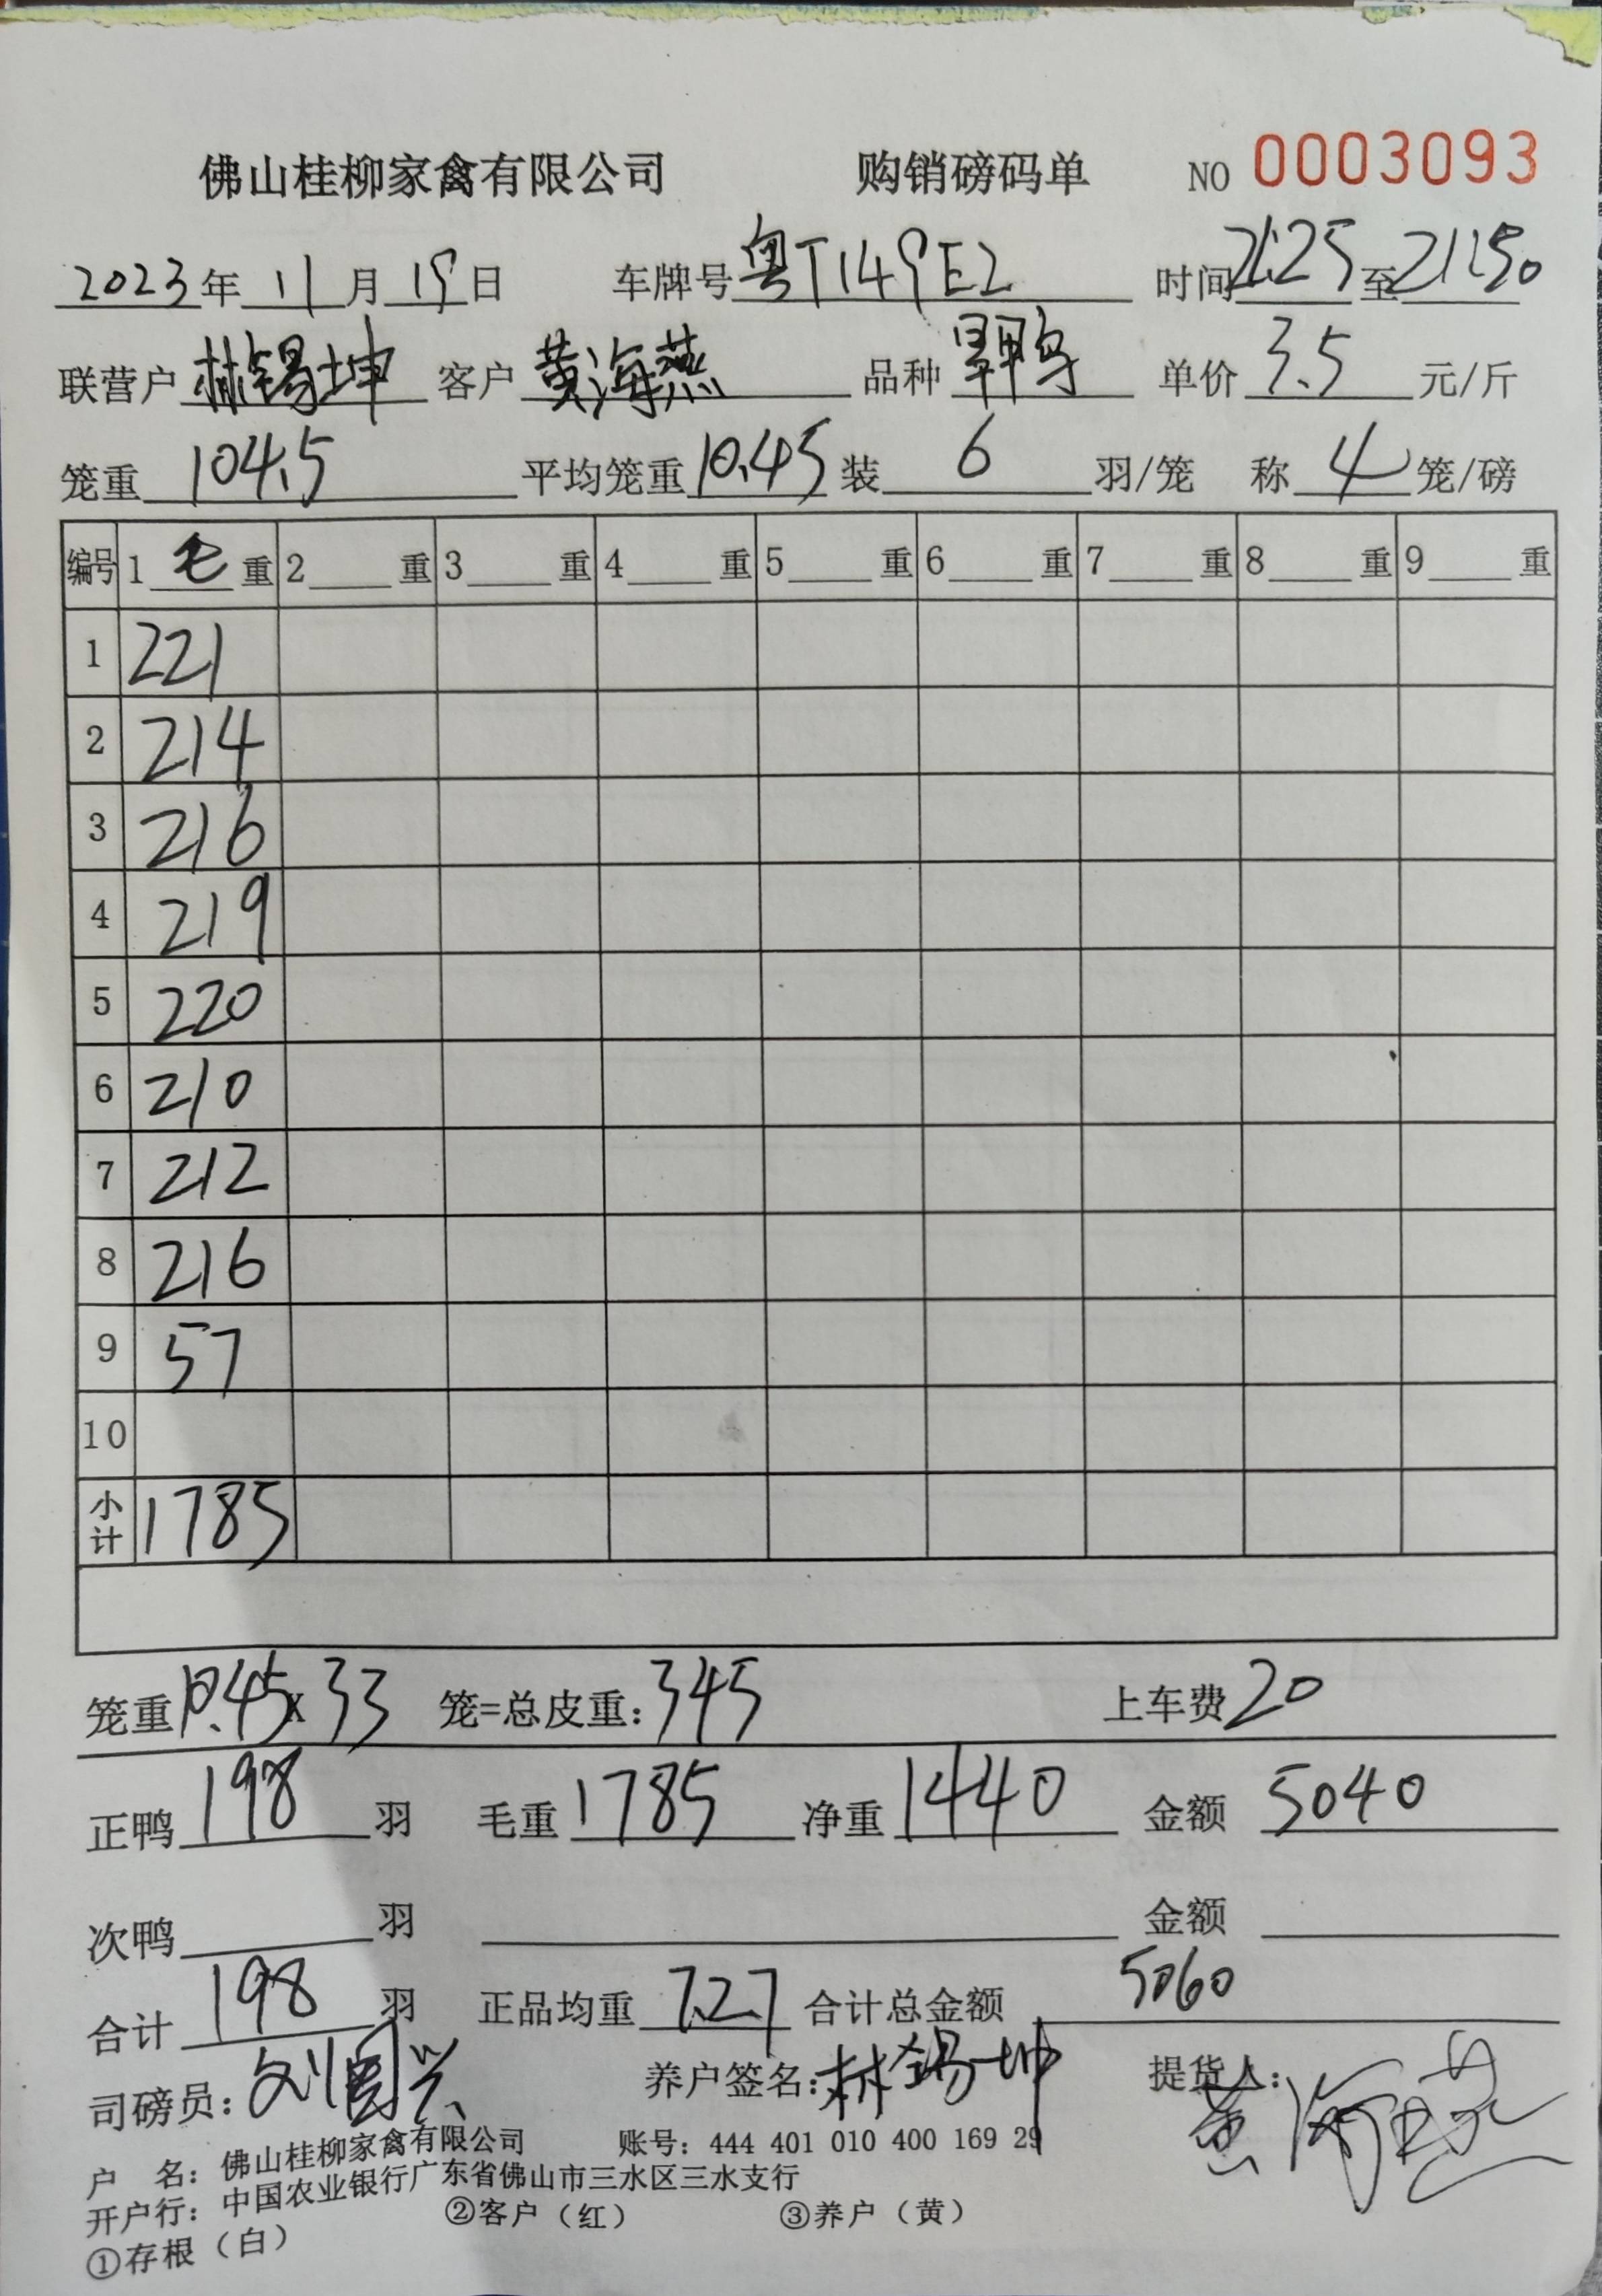 佛山桂柳家禽有限公司 购销磅码单 NO 0003093
2023年 11月 19日 车牌号 粤T149E2 时间 21:25 至 21:50
联营户 林锡坤 客户 黄海燕 品种 鸭 单价 3.5 元/斤
笼重 104.5 平均笼重 10.45 装 6 羽/笼 称 4 笼/磅
编号 1 毛 重 2 重 3 重 4 重 5 重 6 重 7 重 8 重 9 重
1 221
2 214
3 216
4 219
5 220
6 210
7 212
8 216
9 57
10
小计 1785
笼重 10.45 X 33 笼=总皮重: 345 上车费 20
正鸭 198 羽 毛重 1785 净重 1440 金额 5040
次鸭 羽 金额
合计 198 羽 正品均重 7.27 合计总金额 5060
司磅员: 刘国兴 养户签名: 林锡坤 提货人: 黄海燕
户 名: 佛山桂柳家禽有限公司 账号: 444 401 010 400 169 29
开户行: 中国农业银行广东省佛山市三水区三水支行
①存根（白） ②客户（红） ③养户（黄）